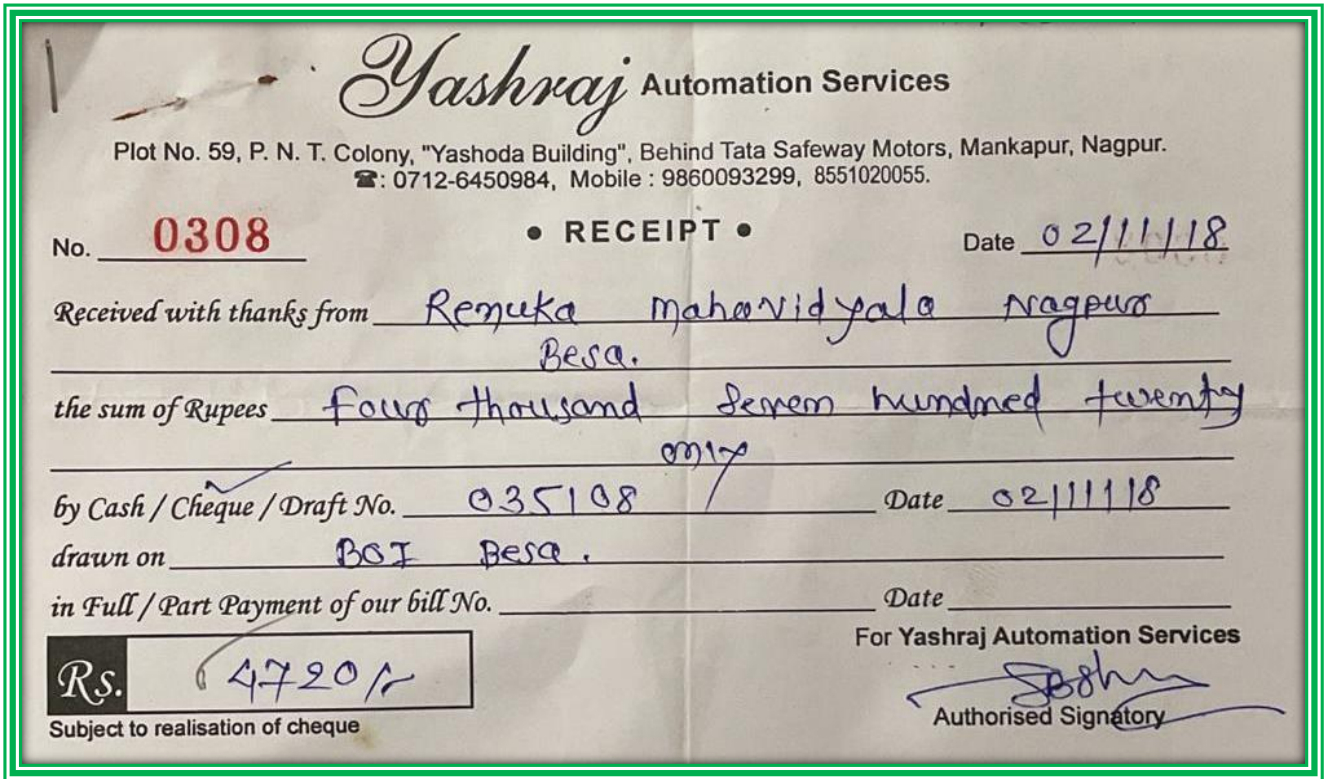 Yashraj Automation Services
Plot No. 59, P. N. T. Colony, "Yashoda Building", Behind Tata Safeway Motors, Mankapur, Nagpur.
☎: 0712-6450984, Mobile : 9860093299, 8551020055.
No. 0308 • RECEIPT • Date 02/11/18
Received with thanks from Renuka Mahavidyala Nagpur
Besa.
the sum of Rupees Four thousand Seven hundred twenty
only
by Cash / Cheque / Draft No. 035108 Date 02/11/18
drawn on BOI Besa.
in Full / Part Payment of our bill No. Date
For Yashraj Automation Services
Rs. 4720/-
Authorised Signatory
Subject to realisation of cheque